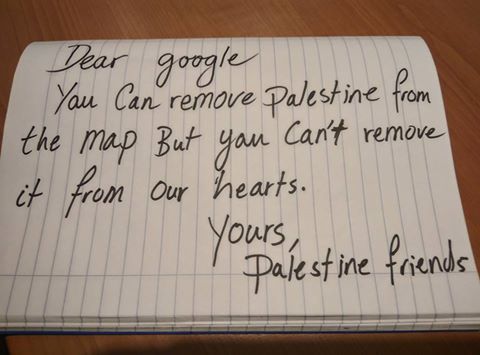 Dear google
You Can remove Palestine from
the map But you Can't remove
it from our hearts.
Yours,
Palestine friends